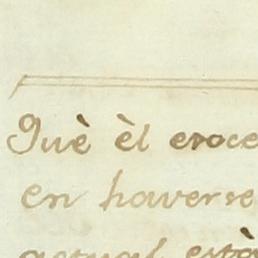 Què èl eroce
en haverse
actual està